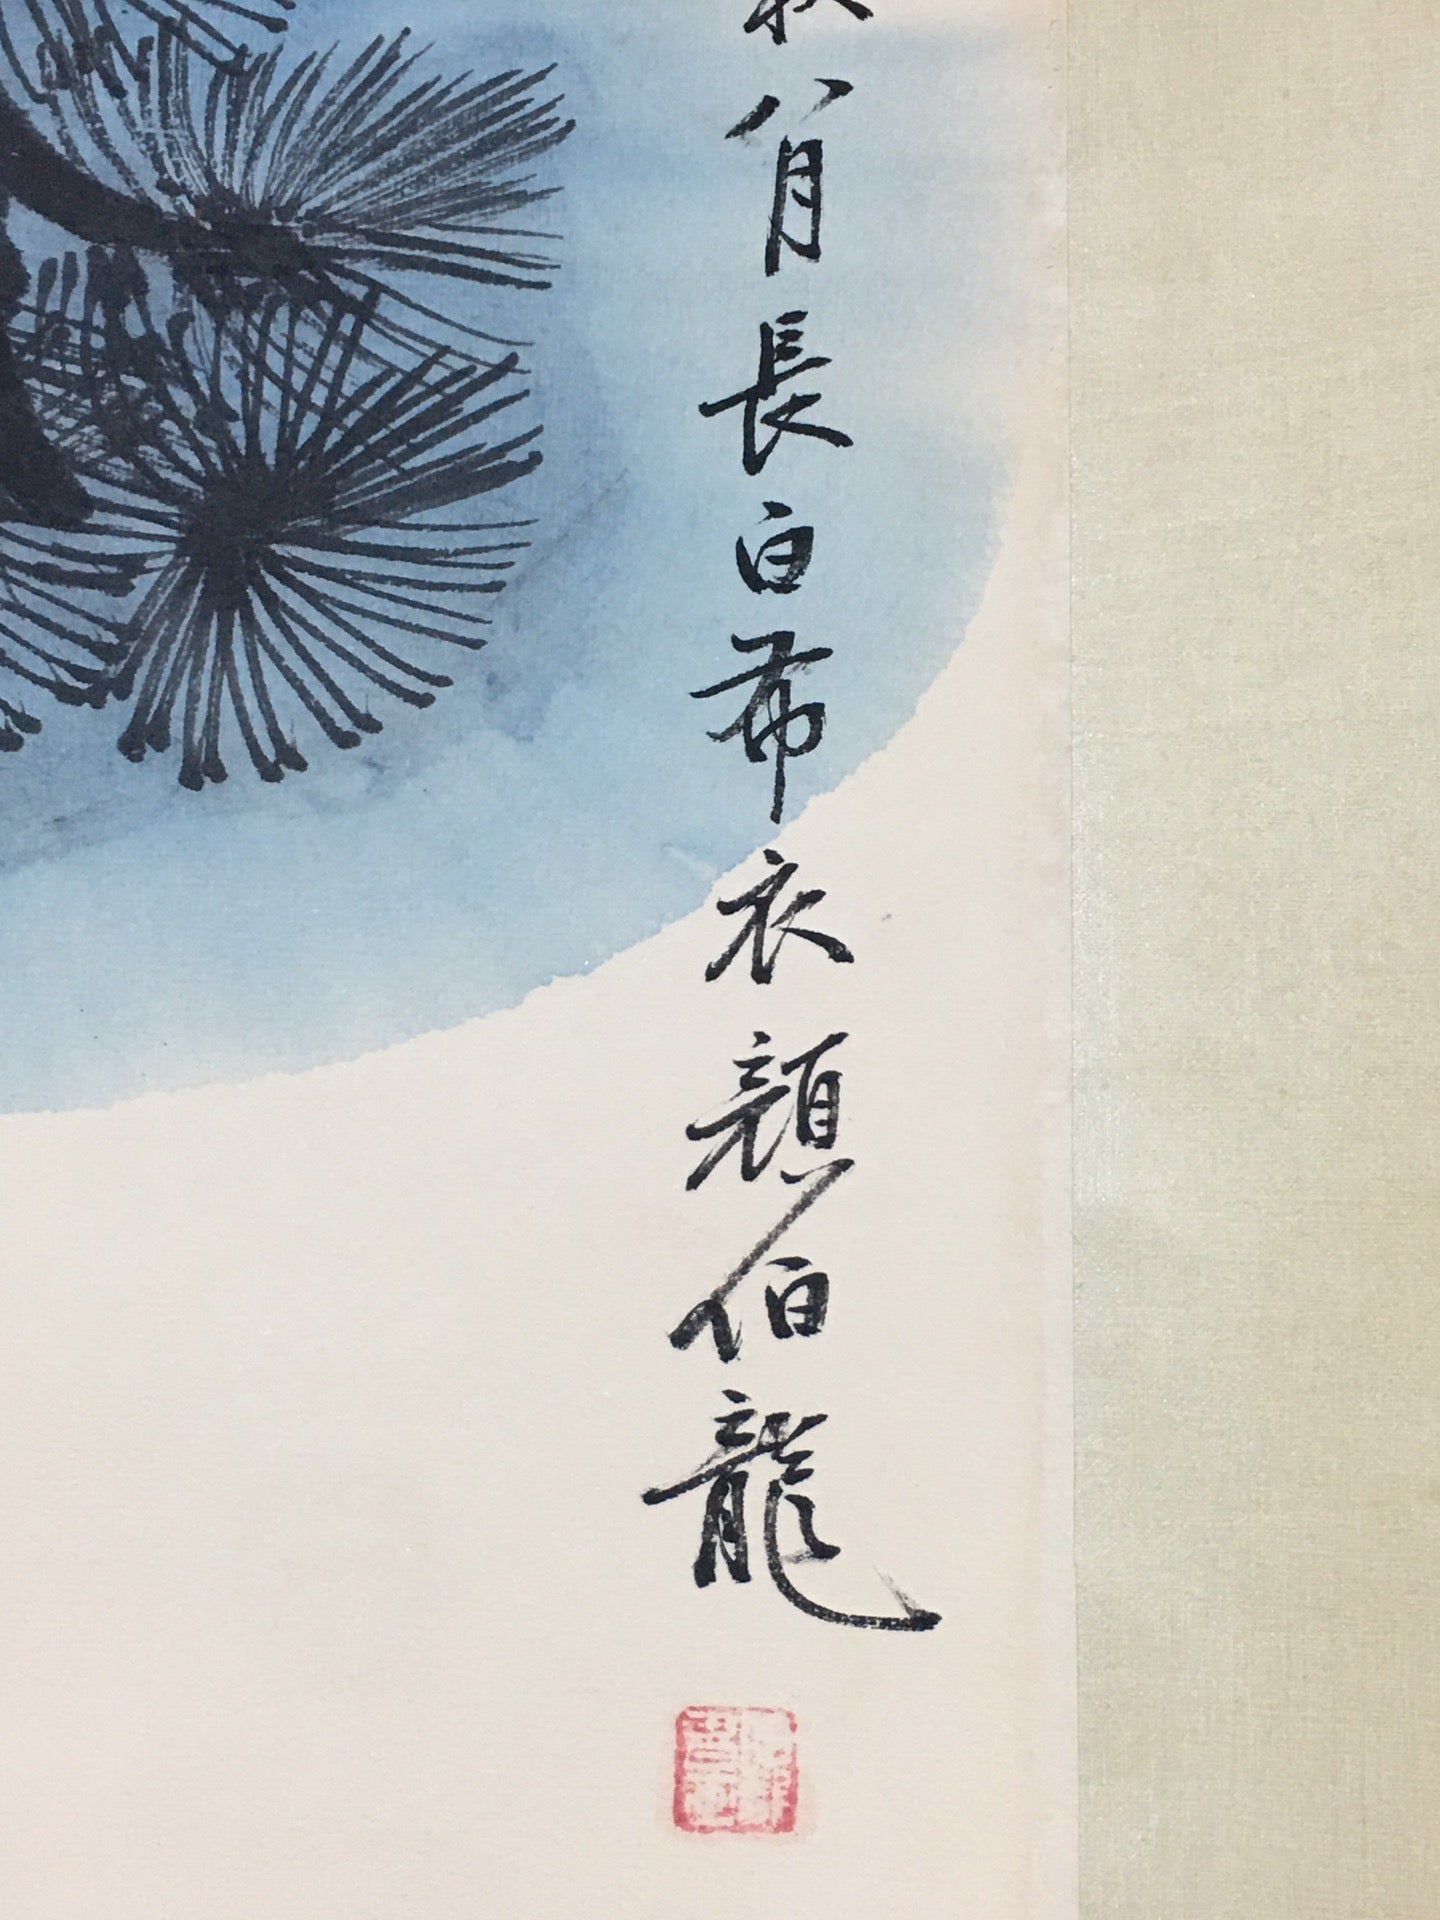 秋八月長白布衣顏伯龍